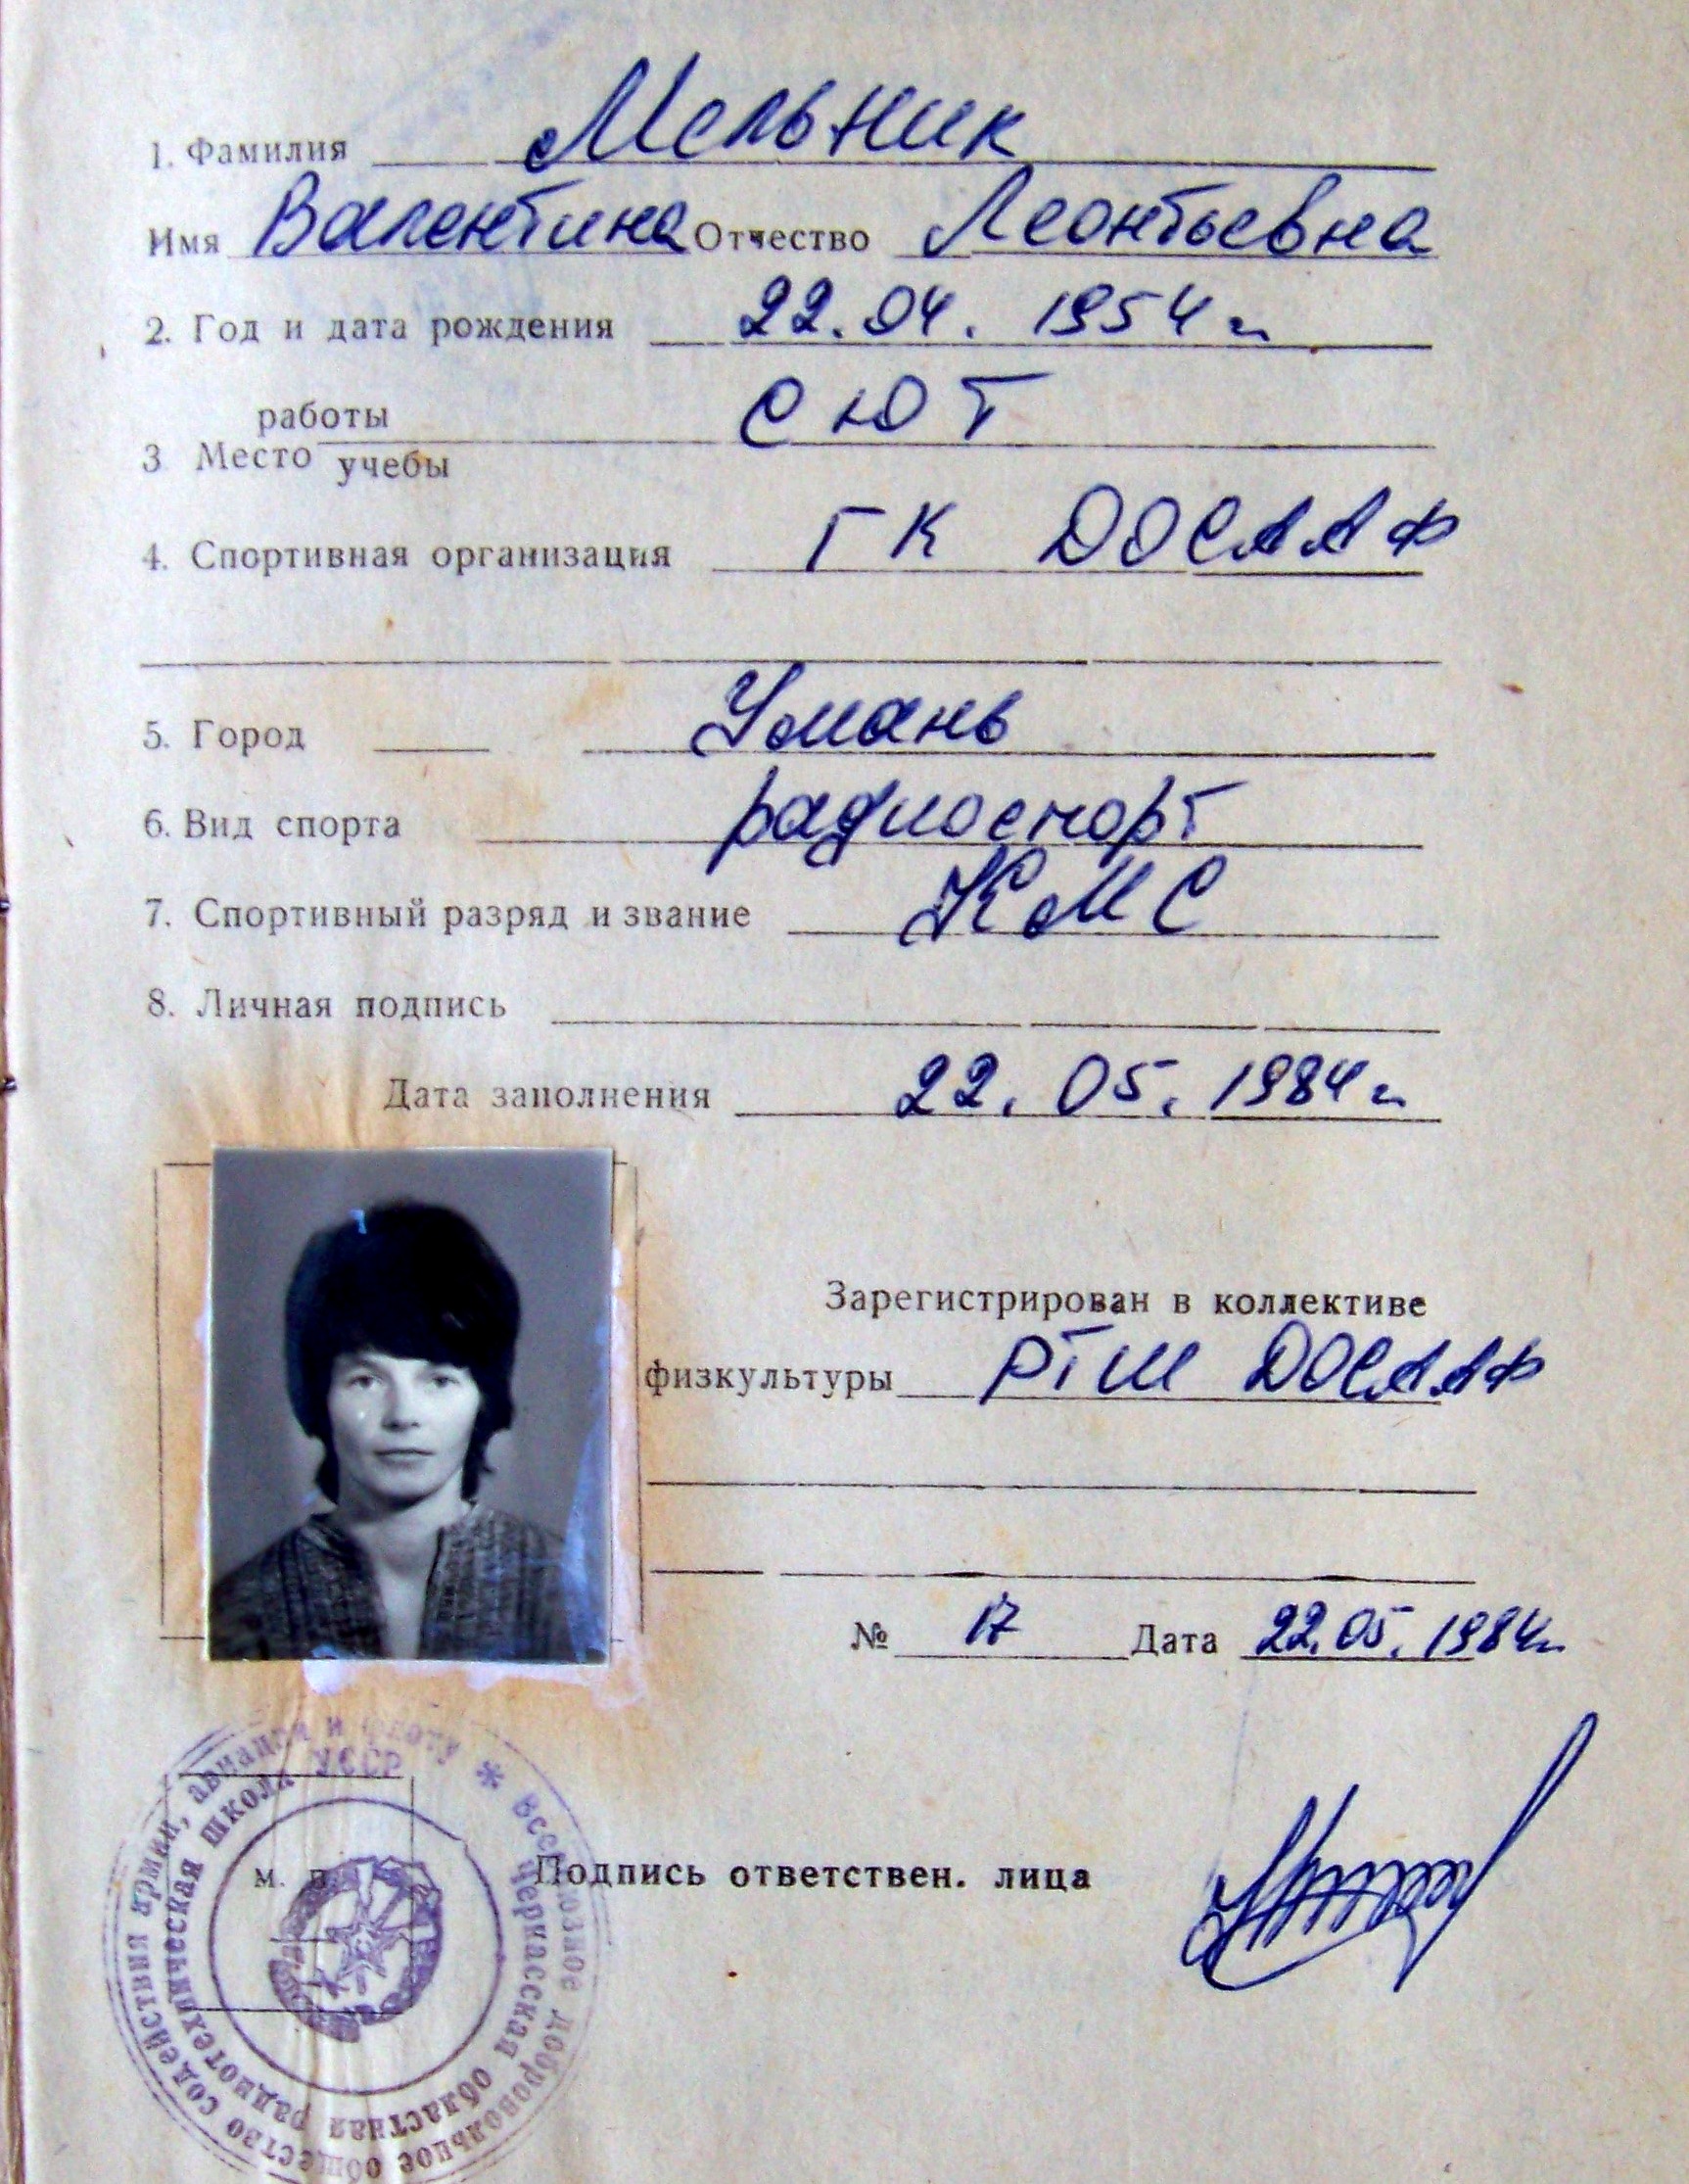 1. Фамилия Мельник
Имя Валентина Отчество Леонтьевна
2. Год и дата рождения 22.04. 1954 г.
работы
3 Место СЮТ
учебы
4. Спортивная организация ГК ДОСААФ
5. Город Умань
6. Вид спорта радиоспорт
7. Спортивный разряд и звание КМС
8. Личная подпись
Дата заполнения 22. 05. 1984 г.
Зарегистрирован в коллективе
физкультуры РТШ ДОСААФ
№ 17 Дата 22.05. 1984 г.
м. п. Подпись ответствен. лица
Всесоюзное добровольное общество содействия армии, авиации и флоту *
Черкасская областная радиотехническая школа УССР